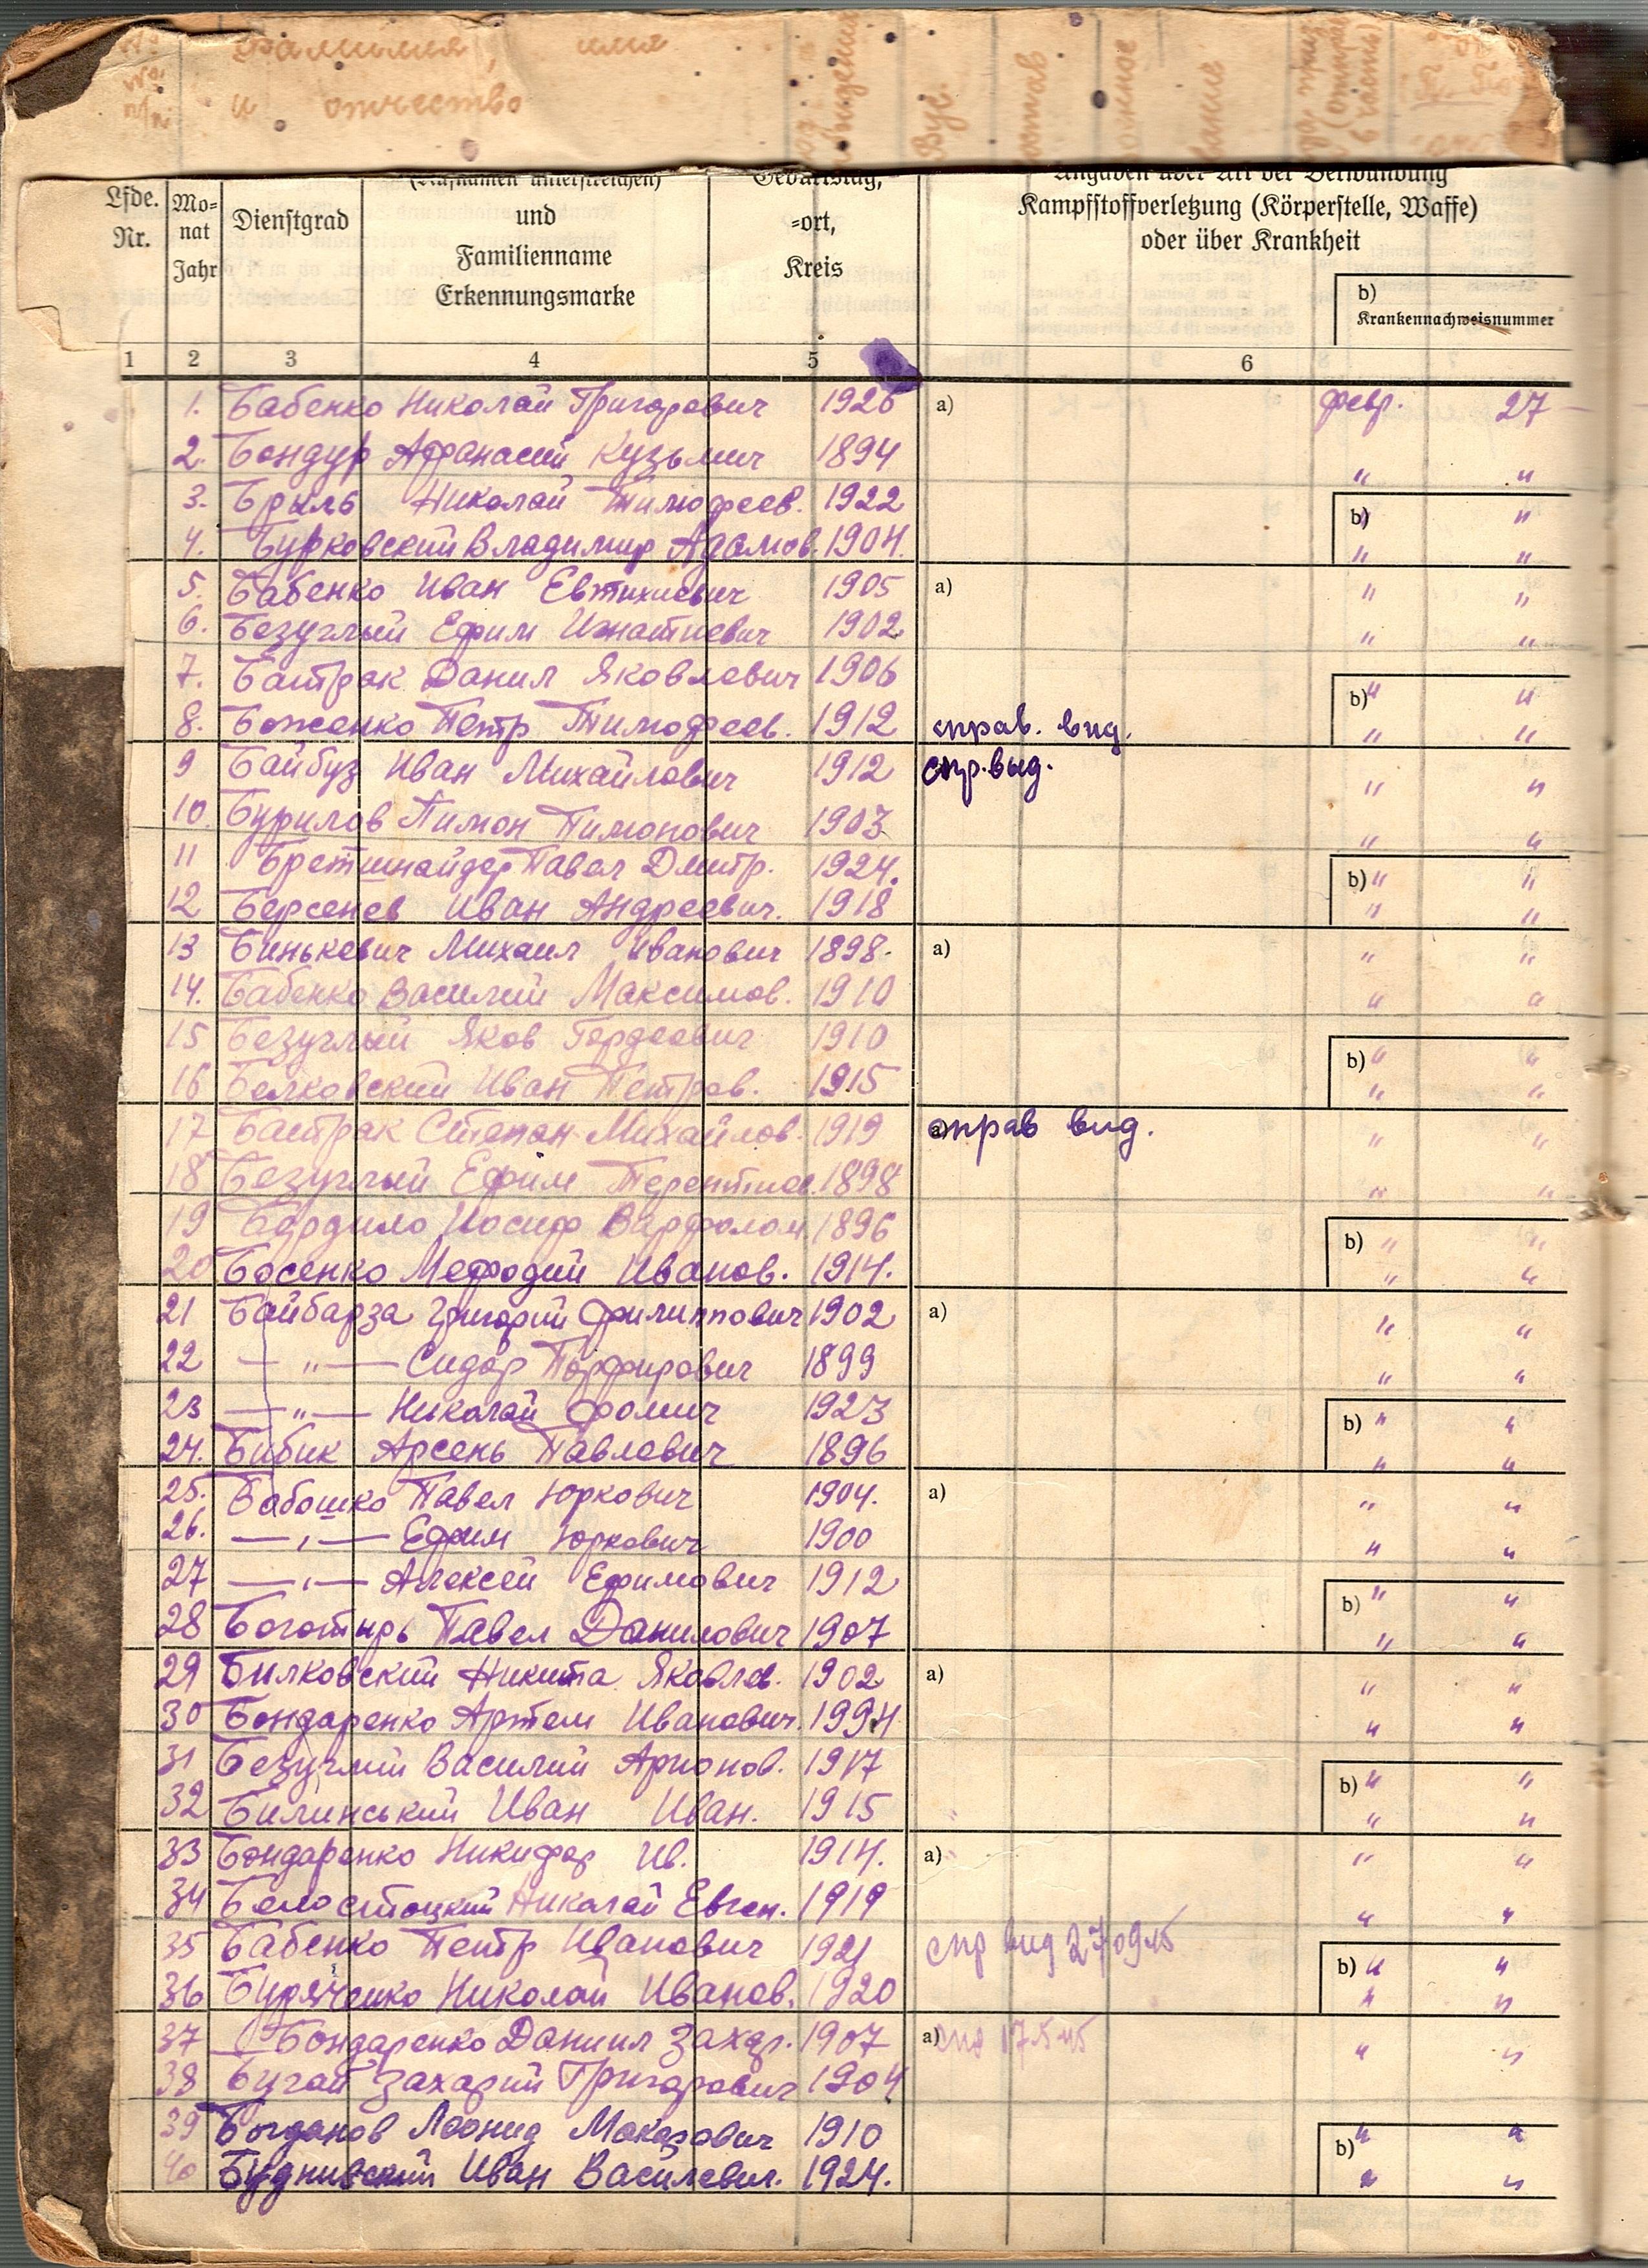 фамилия, имя
и отчество
(Rufnamen unterstreichen) Geburtstag, Angaben über Art der Verwundung
Lfde. Nr. Monat Jahr Dienstgrad und Familienname Erkennungsmarke =ort, Kreis Kampfstoffverletzung (Körperstelle, Waffe) oder über Krankheit
b) Krankennachweisnummer
1 2 3 4 5 6
1. Бабенко Николай Григорович 1926 a) февр. 27
2. Бондур Афанасий Кузьмич 1894 " "
3. Брыль Николай Тимофеев. 1922 b) " "
4. Бурковский Владимир Адамов. 1904. " "
5. Бабенко Иван Евтихиевич 1905 a) " "
6. Безуглый Ефим Игнатиевич 1902 " "
7. Бастрак Данил Яковлевич 1906 b) " "
8. Боженко Петр Тимофеев. 1912 справ. вид. " "
9 Байбуз Иван Михайлович 1912 спр. выд. " "
10. Бурилов Пимон Пимонович 1903 " "
11 Бретшнайдер Павел Дмитр. 1924. b) " "
12 Берсенев Иван Андреевич. 1918 " "
13 Бинькевич Михаил Иванович 1898. a) " "
14. Бабенко Василий Максимов. 1910 " "
15 Безуглый Яков Гордеевич 1910 b) " "
16 Белковский Иван Петров. 1915 " "
17 Бастрак Степан Михайлов. 1919 справ вид. " "
18 Безуглый Ефим Терентиев. 1898 " "
19 Бердило Иосиф Варфолом 1896 b) " "
20 Босенко Мефодий Иванов. 1914. " "
21 Байбарза Григорий Филиппович 1902 a) " "
22 — " — Сидор Порфирович 1899 " "
23 — " — Николай Фомич 1923 b) " "
24. Бибик Арсень Павлович 1896 " "
25. Бабошко Павел Юркович 1904. a) " "
26. — " — Ефим Юркович 1900 " "
27 — " — Алексей Ефимович 1912 b) " "
28 Боготырь Павел Данилович 1907 " "
29 Билковский Никита Яковлев. 1902 a) " "
30 Бондаренко Артем Иванович. 1994 " "
31 Безуглий Василий Арионов. 1917 b) " "
32 Билинський Иван Иван. 1915 " "
33 Бондаренко Никифор Ив. 1914. a) " "
34 Белостоцкий Николай Евген. 1919 " "
35 Бабенко Петр Иванович 1921 спр вид 27/09 45 b) " "
36 Буряченко Николай Иванов. 1920 " "
37 Бондаренко Даниил Захар. 1907 a) 17.5.45 " "
38 Бугай Захарий Григорович 1904
39 Богданов Леонид Макарович 1910 b) " "
40 Буднивский Иван Василевич. 1924. " "